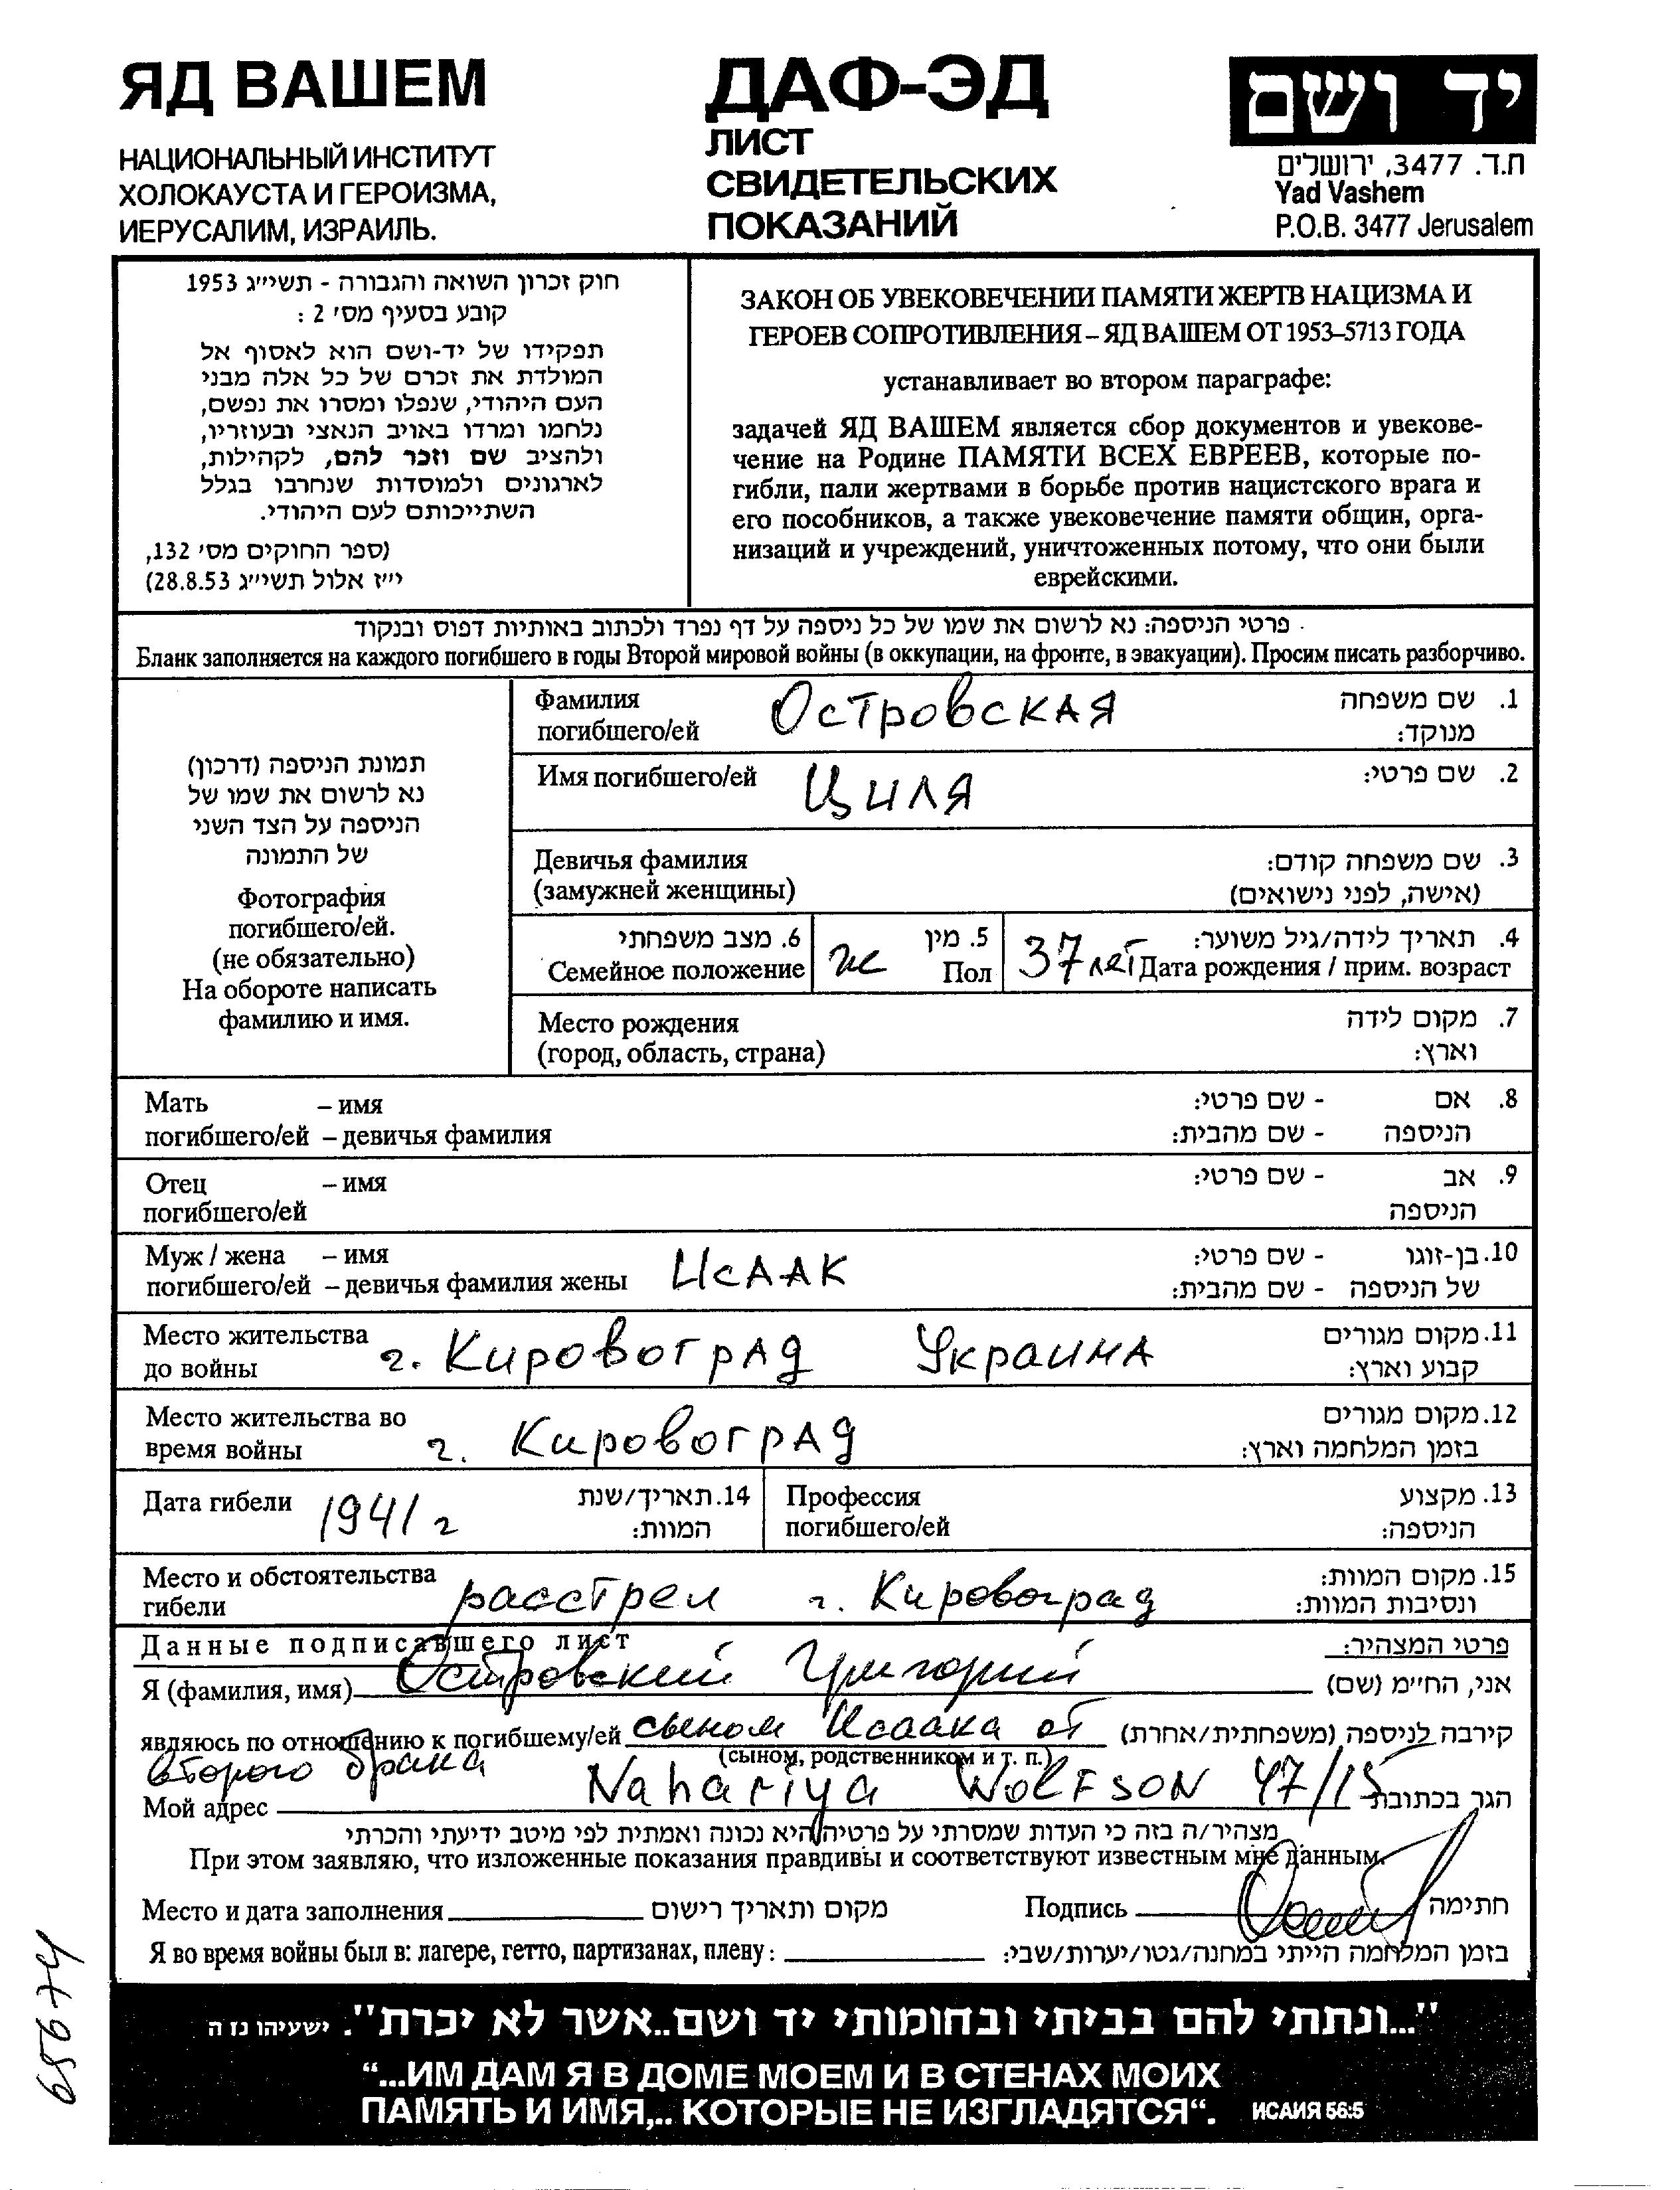 ЯД ВАШЕМ
НАЦИОНАЛЬНЫЙ ИНСТИТУТ
ХОЛОКАУСТА И ГЕРОИЗМА,
ИЕРУСАЛИМ, ИЗРАИЛЬ.
ДАФ-ЭД
ЛИСТ
СВИДЕТЕЛЬСКИХ
ПОКАЗАНИЙ
יד ושם
ת.ד. 3477, ירושלים
Yad Vashem
P.O.B. 3477 Jerusalem
חוק זכרון השואה והגבורה - תשי״ג 1953
קובע בסעיף מס׳ 2 :
תפקידו של יד-ושם הוא לאסוף אל
המולדת את זכרם של כל אלה מבני
העם היהודי, שנפלו ומסרו את נפשם,
נלחמו ומרדו באויב הנאצי ובעוזריו,
ולהציב שם וזכר להם, לקהילות,
לארגונים ולמוסדות שנחרבו בגלל
השתייכותם לעם היהודי.
(ספר החוקים מס׳ 132,
י״ז אלול תשי״ג 28.8.53)
ЗАКОН ОБ УВЕКОВЕЧЕНИИ ПАМЯТИ ЖЕРТВ НАЦИЗМА И
ГЕРОЕВ СОПРОТИВЛЕНИЯ – ЯД ВАШЕМ ОТ 1953–5713 ГОДА
устанавливает во втором параграфе:
задачей ЯД ВАШЕМ является сбор документов и увекове-
чение на Родине ПАМЯТИ ВСЕХ ЕВРЕЕВ, которые по-
гибли, пали жертвами в борьбе против нацистского врага и
его пособников, а также увековечение памяти общин, орга-
низаций и учреждений, уничтоженных потому, что они были
еврейскими.
פרטי הניספה: נא לרשום את שמו של כל ניספה על דף נפרד ולכתוב באותיות דפוס ובנקוד
Бланк заполняется на каждого погибшего в годы Второй мировой войны (в оккупации, на фронте, в эвакуации). Просим писать разборчиво.
תמונת הניספה (דרכון)
נא לרשום את שמו של
הניספה על הצד השני
של התמונה
Фотография
погибшего/ей.
(не обязательно)
На обороте написать
фамилию и имя.
Фамилия Островская 1. שם משפחה
погибшего/ей מנוקד:
Имя погибшего/ей Циля 2. שם פרטי:
Девичья фамилия 3. שם משפחה קודם:
(замужней женщины) (אישה, לפני נישואים)
6. מצב משפחתי 5. מין 4. תאריך לידה/גיל משוער:
Семейное положение ж Пол 37 лет Дата рождения / прим. возраст
Место рождения 7. מקום לידה
(город, область, страна) וארץ:
Мать – имя 8. אם - שם פרטי:
погибшего/ей – девичья фамилия הניספה - שם מהבית:
Отец – имя 9. אב - שם פרטי:
погибшего/ей הניספה
Муж / жена – имя Исаак 10. בן-זוגו - שם פרטי:
погибшего/ей – девичья фамилия жены של הניספה - שם מהבית:
Место жительства г. Кировоград Украина 11. מקום מגורים
до войны קבוע וארץ:
Место жительства во г. Кировоград 12. מקום מגורים
время войны בזמן המלחמה וארץ:
Дата гибели 1941 г 14. תאריך/שנת Профессия 13. מקצוע
המוות: погибшего/ей הניספה:
Место и обстоятельства расстрел г. Кировоград 15. מקום המוות:
гибели ונסיבות המוות:
Данные подписавшего лист פרטי המצהיר:
Я (фамилия, имя) Островский Григорий אני, החי״מ (שם)
являюсь по отношению к погибшему/ей сыном Исаака от קירבה לניספה (משפחתית/אחרת)
второго брака (сыном, родственником и т. п.)
Мой адрес Nahariya WOLFSON 47/15 הגר בכתובת
מצהיר/ה בזה כי העדות שמסרתי על פרטיה היא נכונה ואמתית לפי מיטב ידיעתי והכרתי
При этом заявляю, что изложенные показания правдивы и соответствуют известным мне данным.
Место и дата заполнения מקום ותאריך רישום Подпись חתימה
Я во время войны был в: лагере, гетто, партизанах, плену: בזמן המלחמה הייתי במחנה/גטו/יערות/שבי:
"...ונתתי להם בביתי ובחומותי יד ושם..אשר לא יכרת". ישעיהו נז ה
“...ИМ ДАМ Я В ДОМЕ МОЕМ И В СТЕНАХ МОИХ
ПАМЯТЬ И ИМЯ,.. КОТОРЫЕ НЕ ИЗГЛАДЯТСЯ“. ИСАИЯ 56:5